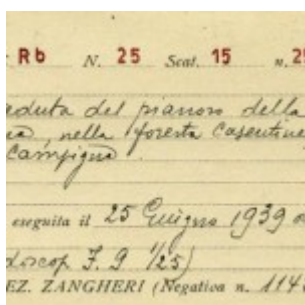 Rb N. 25 Scat. 15 n. 25
eduta del pianoro della
nella foresta Casentine
Campigna.
eseguita il 25 Giugno 1939
doscop F. 9 1/25)
EZ. ZANGHERI (Negativa n. 114